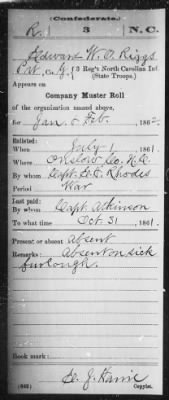 (Confederate.)
R. 3 N.C.
Edward W. O. Riggs
Pvt., Co. G, 3 Reg't North Carolina Inf.
(State Troops.)
Appears on
Company Muster Roll
of the organization named above,
for Jan. & Feb., 1862
Enlisted:
When July 1, 1861
Where Onslow Co. N.C.
By whom Capt. E. H. Rhodes
Period War
Last paid:
By whom Capt. Atkinson
To what time Oct. 31, 1861.
Present or absent Absent
Remarks: Absent on sick
furlough.
Book mark:
(642)
Copyist.